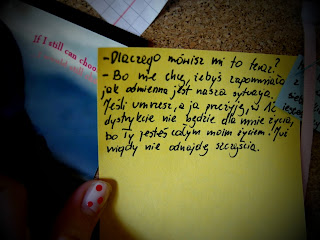 If I still can choo
- Dlaczego mówisz mi to teraz?
- Bo nie chcę, żebyś zapomniała z
jak odmienna jest nasza sytuacja.
Jeśli umrzesz, a ja przeżyję, w 12
dystrykcie nie będzie dla mnie życia,
bo Ty jesteś całym moim życiem. Już
nigdy nie odnajdę szczęścia.